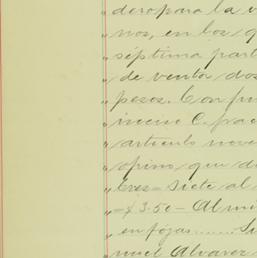 dero para la v
nos, en los q
séptima part
de ventas dos
pesos. Con fun
inciso C. frac
articulo nove
opino, que d
tres = siete al
= $3.50 - Al m
en fojas
nuel Alvarez